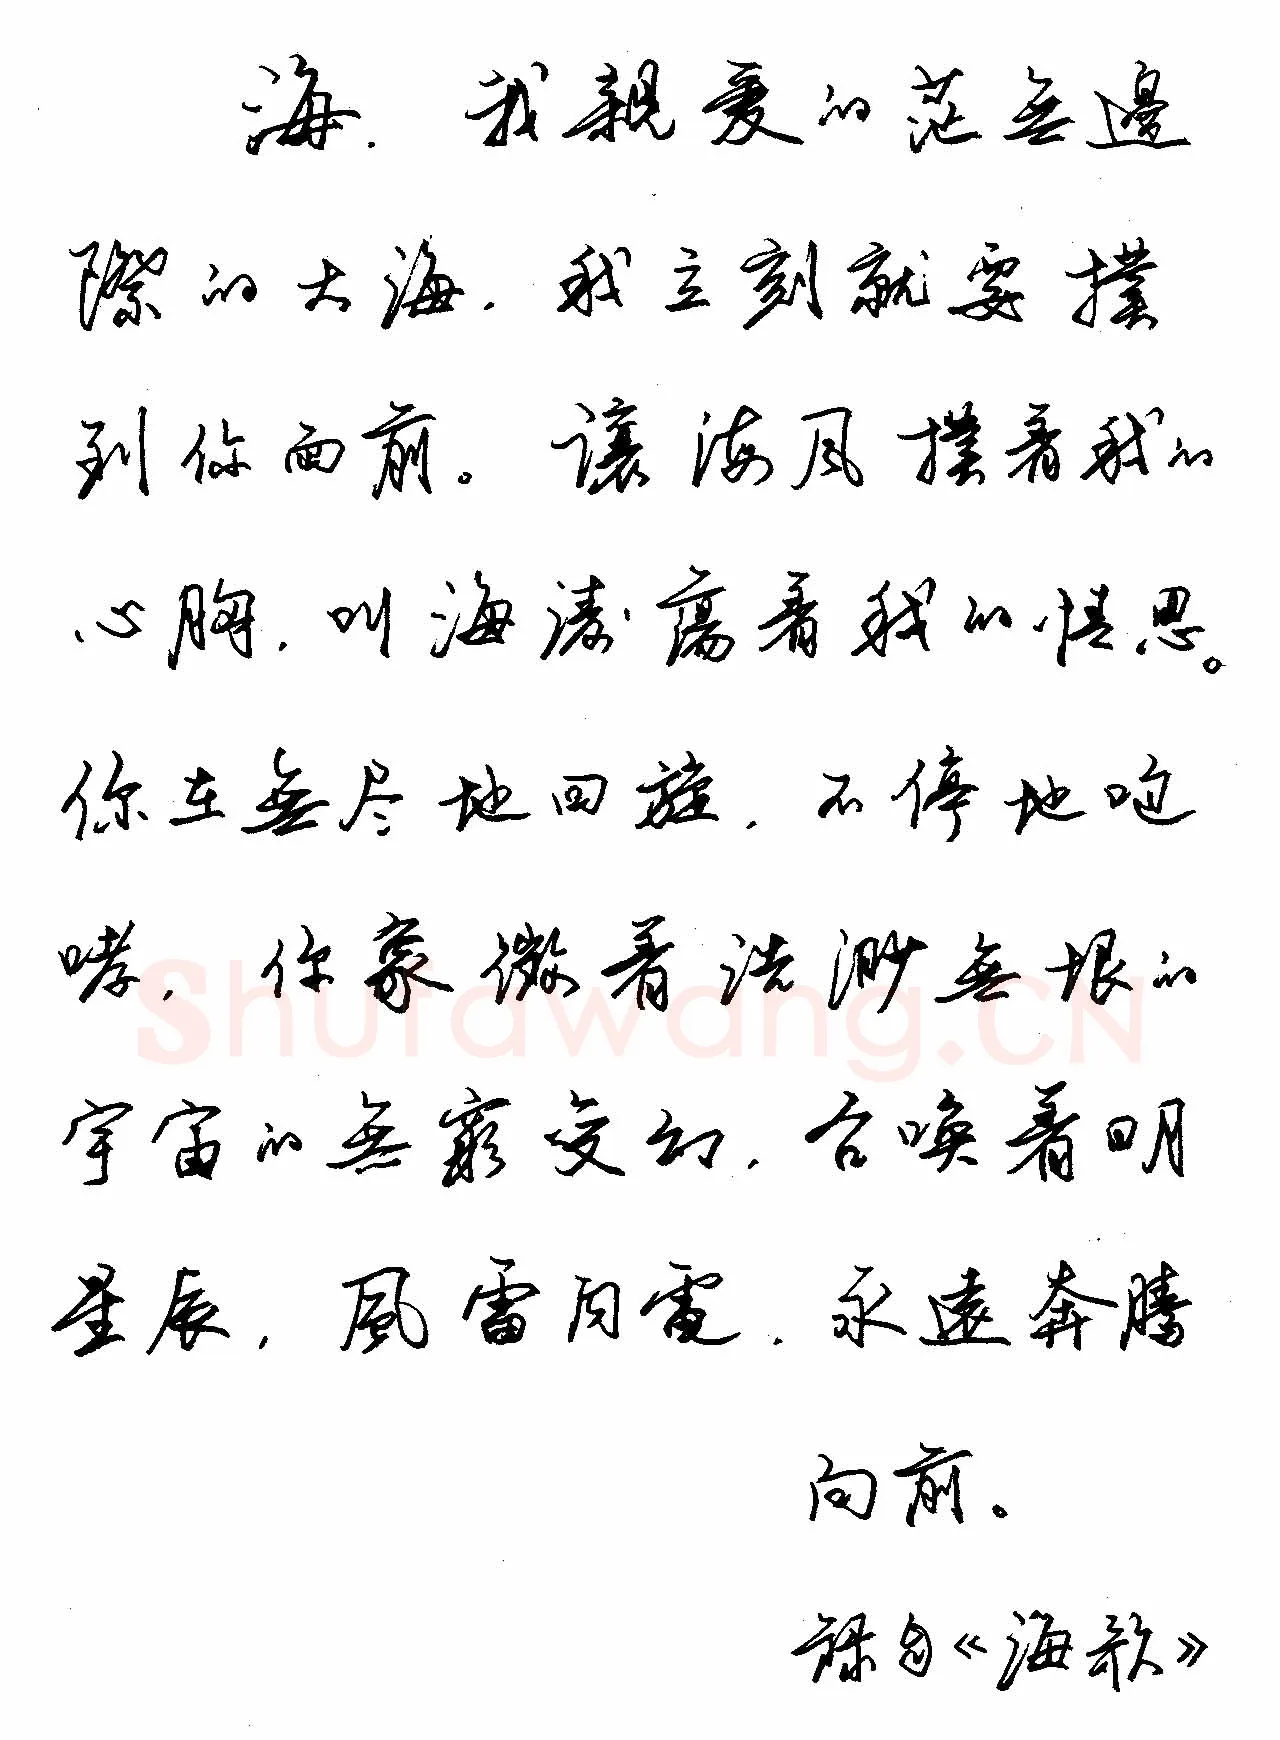 海，我親爱的茫無邊
際的大海，我立刻就要撲
到你面前。讓海风撲着我的
心胸，叫海濤蕩着我的情思。
你在無尽地回旋，不停地咆
哮，你象徵着浩渺無垠的
宇宙的無窮变幻，召唤着明
星辰，風雷闪電，永遠奔騰
向前。
錄自《海歌》
Shufawang.CN